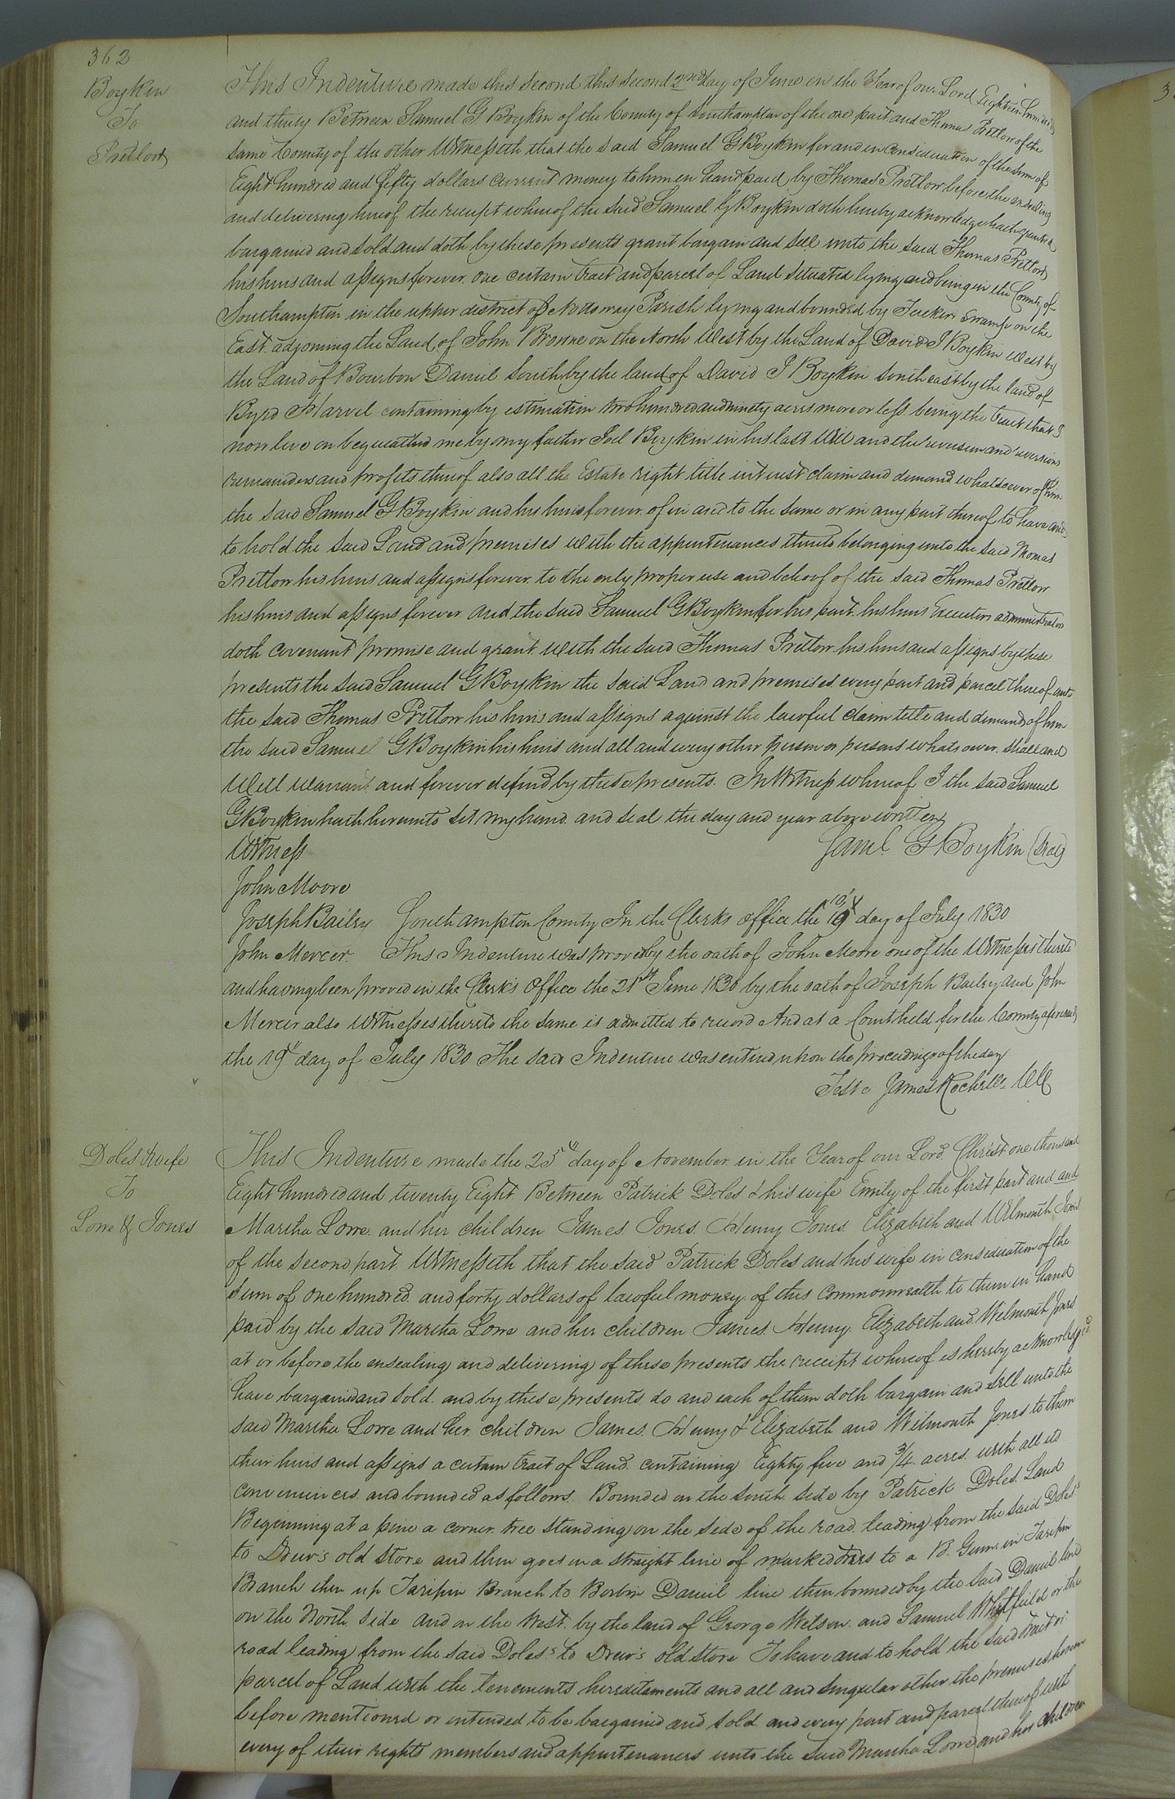 362
Boykin
To
Pretlow
This Indenture made this second this second 2nd day of June in the Year of our Lord Eighteen hundred
and thirty Between Samuel G Boykin of the County of Southampton of the one part and Thomas Pretlow of the
same County of the other Witnesseth that the said Samuel G Boykin for and in Consideration of the sum of
Eight hundred and fifty dollars current money to him in hand paid by Thomas Pretlow before the ensealing
and delivering hereof the receipt whereof the said Samuel G Boykin doth hereby acknowledge hath granted
bargained and sold and doth by these presents grant bargain and sell unto the said Thomas Pretlow
his heirs and assigns forever one certain tract and parcel of Land situated lying and being in the County of
Southampton in the upper district of Nottoway Parish lying and bounded by Tucker Swamp on the
East adjoining the Land of John Browne on the North West by the Land of David J Boykin West by
the Land of Bourbon Daniel South by the land of David J Boykin South east by the land of
Byrd Harvel containing by estimation two hundred and ninety acres more or less being the tract that I
now live on bequeathed me by my father Joel Boykin in his last Will and the reversion and reversions
remainders and profits thereof also all the Estate right title interest claim and demand whatsoever of him
the said Samuel G Boykin and his heirs forever of in and to the same or in any part thereof to have and
to hold the said Land and premises with the appurtenances thereto belonging unto the said Thomas
Pretlow his heirs and assigns forever to the only proper use and behoof of the said Thomas Pretlow
his heirs and assigns forever and the said Samuel G Boykin for his part his heirs Executors administrators
doth covenant promise and grant with the said Thomas Pretlow his heirs and assigns by these
presents the said Samuel G Boykin the said Land and premises every part and parcel thereof unto
the said Thomas Pretlow his heirs and assigns against the lawful claim title and demand of him
the said Samuel G Boykin his heirs and all and every other person or persons whatsoever shall and
Will warrant and forever defend by these presents. In Witness whereof I the said Samuel
G Boykin hath hereunto set my hand and seal the day and year above written
Witness Saml G Boykin (Seal)
John Moore
Joseph Bailey Southampton County In the Clerks office the 19 day of July 1830
John Mercer This Indenture was proved by the oath of John Moore one of the Witnesses thereto
and having been proved in the Clerk's Office the 21st June 1830 by the oath of Joseph Bailey and John
Mercer also Witnesses thereto the same is admitted to record And at a Court held for the County aforesaid
the 19th day of July 1830 The said Indenture was entered upon the proceedings of the day
Teste James Rochelle CC
Doles & wife
To
Lowe & Jones
This Indenture made the 25th day of November in the Year of our Lord Christ one thousand
Eight hundred and twenty Eight Between Patrick Doles & his wife Emily of the first part and and
Martha Lowe and her children James Jones Henry Jones Elizabeth and Wilmouth Jones
of the second part Witnesseth that the said Patrick Doles and his wife in consideration of the
Sum of one hundred and forty dollars of lawful money of this commonwealth to them in hand
paid by the said Martha Lowe and her children James Henry Elizabeth and Wilmouth Jones
at or before the ensealing and delivering of these presents the receipt whereof is hereby acknowledged
have bargained and sold and by these presents do and each of them doth bargain and sell unto the
said Martha Lowe and her children James Henry & Elizabeth and Wilmouth Jones to them
their heirs and assigns a certain tract of Land containing Eighty five and 3/4 acres with all its
conveniences and bounded as follows. Bounded on the South Side by Patrick Doles Land
Beginning at a pine a corner tree standing on the side of the road leading from the said Doles's
to Drew's old store and then goes in a straight line of marked trees to a B. Gum in Taripin
Branch then up Taripin Branch to Borbon Daniel line then bounded by the said Daniel line
on the North side and on the West by the land of George Wilson and Samuel Whitfield or the
road leading from the said Doles's to Drew's old store To have and to hold the said tract or
parcel of Land with the tenements hereditaments and all and singular other the premises herein
before mentioned or intended to be bargained and sold and every part and parcel thereof with
every of their rights members and appurtenances unto the said Martha Lowe and her children